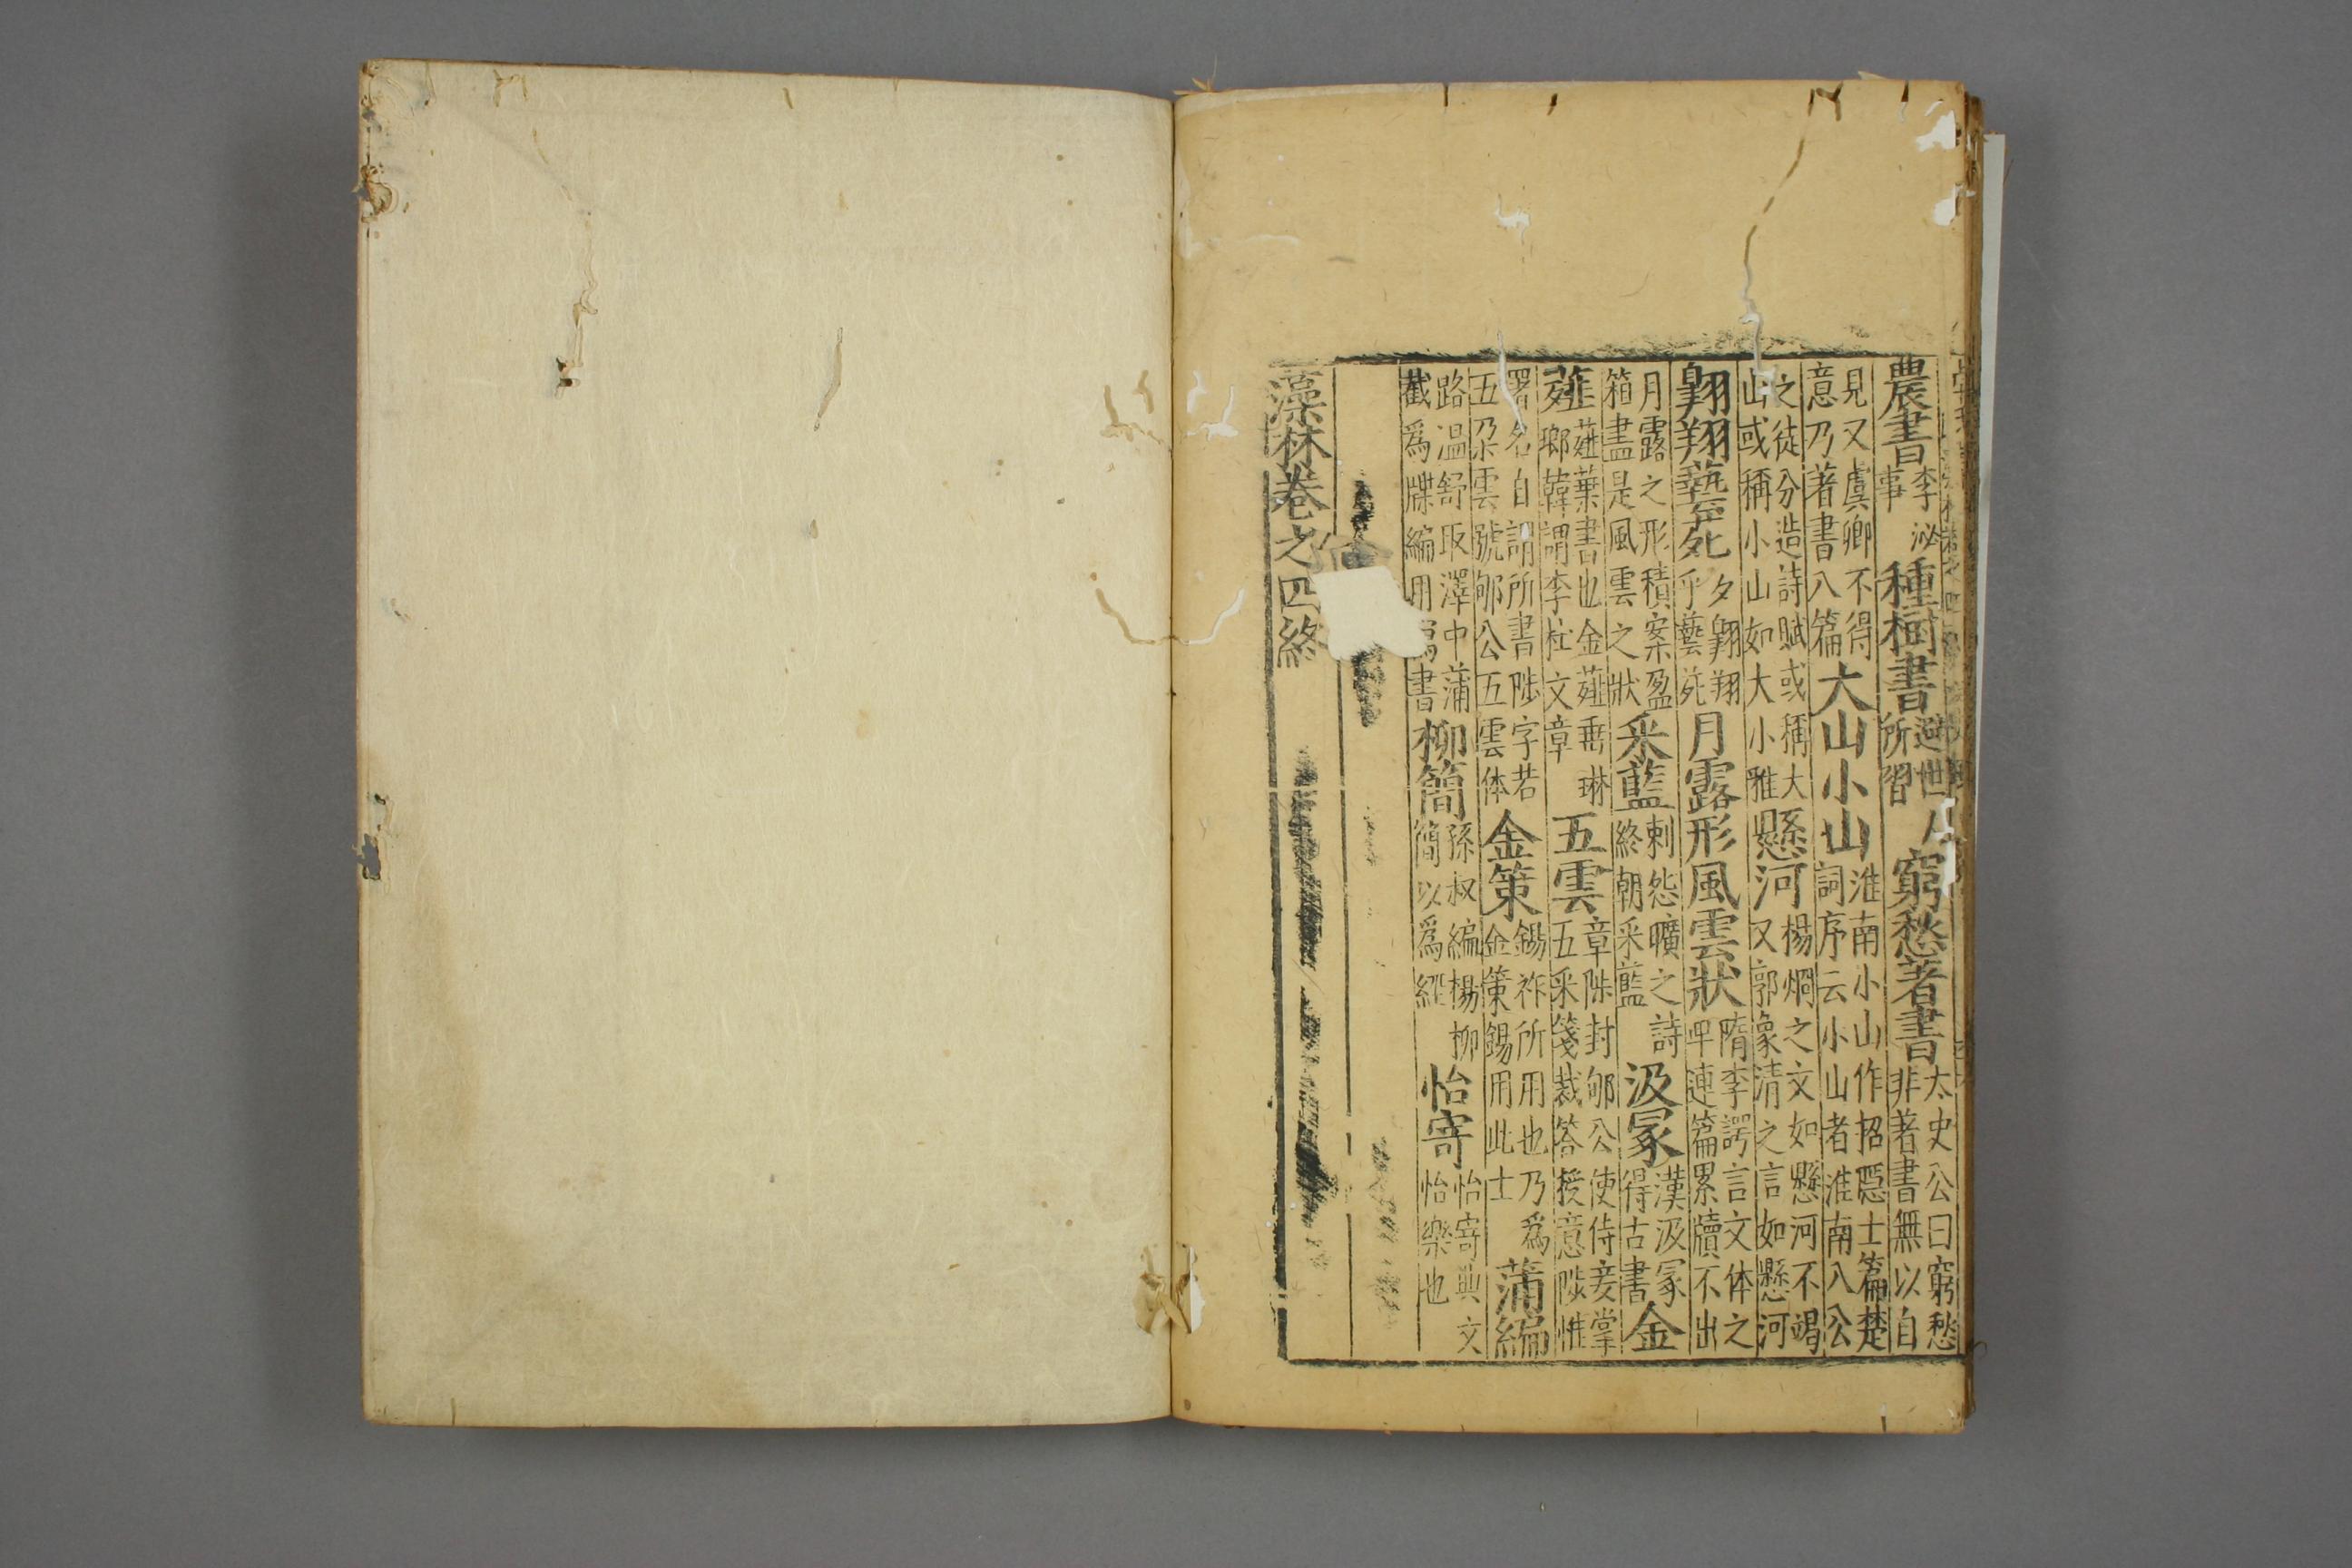 農書李泌事種樹書避世所習窮愁著書太史公曰窮愁非著書無以自
見又虞卿不得意乃著書八篇大山小山淮南小山作招隱士篇楚詞序云小山者淮南八公
之徒分造詩賦或稱大山或稱小山如大小雅懸河楊烱之文如懸河不竭又郭象清之言如懸河
翱翔藝苑夕翱翔乎藝苑月露形風雲狀隋李諤言文体之牢連篇累牘不出
月露之形積案盈箱盡是風雲之狀采藍刺怨曠之詩終朝采藍汲冢漢汲冢得古書金
薤薤葉書也金薤垂琳瑯韓謂李杜文章五雲章陟封郇公使侍妾掌五采箋裁答授意陟惟
署名自謂所書陟字若五朶雲號郇公五雲体金策錫祚所用也乃為金策錫用此士蒲編
路温舒取澤中蒲截爲牒編用寫書柳簡孫叔編楊柳簡以爲經怡寄怡寄典文怡樂也
藻林卷之四終